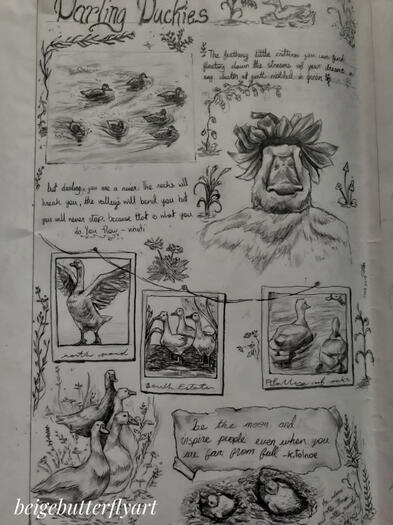 Darling Duckies
The feathery little critters you can find
floating down the streams of your dreams or
any cluster of
but darling, you are a river. The rocks will
break you, the valleys will bend you but
you will never stop. because that is what you
do. You flow -
north
South Estates
be the moon and
inspire people even when you
are far from full -K.Tolnoe
beigebutterflyart